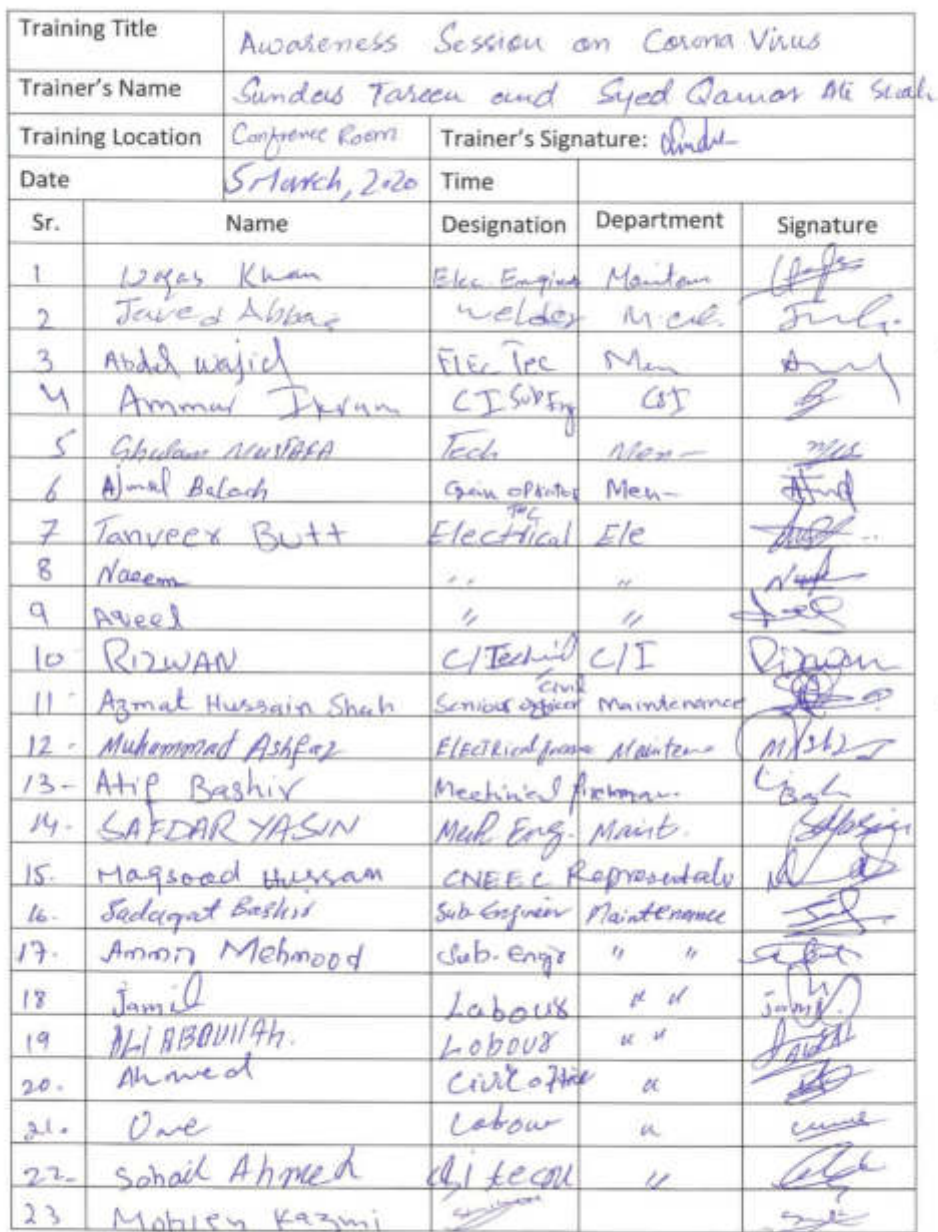 Training Title Awareness Session on Corona Virus
Trainer's Name Sundas Tareen and Syed Qamar Ali Shah
Training Location Confrence Room Trainer's Signature:
Date 5 March, 2020 Time
Sr. Name Designation Department Signature
1 Waqas Khan Elec. Engineer Maintan
2 Javed Abbas Welder Mech.
3 Abdul Wajid Elec Tec Men
4 Ammar Ikram CI Sub Eng C&I
5 Ghulam MUSTAFA Tech Men-
6 Ajmal Baloch Men-
7 Tanveer Butt Electrical Tec Ele
8 Naeem " "
9 Aqeel " "
10 RIZWAN C/I C/I Rizwan
11 Azmat Hussain Shah Senior officer Civil Maintenance
12 - Muhammad Ashfaq Electrical
13 - Atif Bashir
14. SAFDAR YASIN Mech. Eng. Maint.
15. Maqsood Hussain CNEEC
16. Sadaqat Bashir Sub-Engineer Maintenance
17. Mehmood Sub-engr " "
18 Jamil Labour " "
19 ALI ABDULLAH. Labour " "
20. Ahmed Civil "
21. Labour "
22- Sohail Ahmed "
23 Kazmi